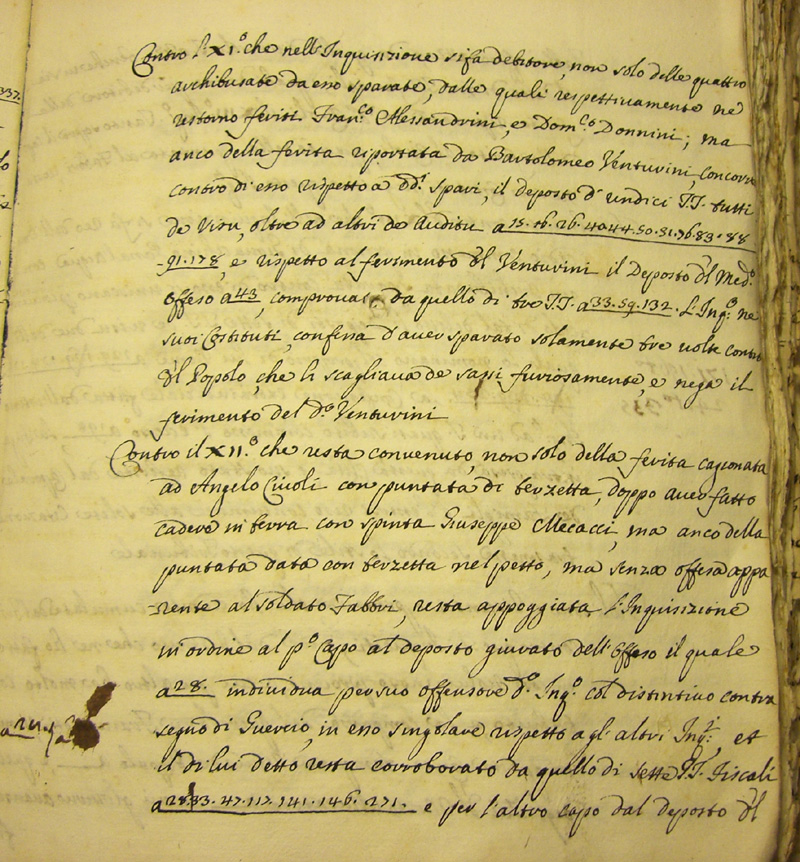 Contro l'XI.º che nell'Inquisizione si fà debitore, non solo delle quattro
archibusate da esso sparate, dalle quali respettivamente ne
restorno feriti Fran.co Alessandrini, e Dom.co Donnini; ma
anco della ferita riportata da Bartolomeo Venturini, concorre
contro di esso rispetto a dd.i spari, il deposto d'undici TT. tutti
de visu, oltre ad altri de Auditu a 15. 16. 26. 40 44. 50. 51. 76. 83. 88
91. 178, e rispetto al ferimento del Venturini il Deposto del Med.º
offeso a 43, comprovato da quello di tre TT. a 33. 59. 132. L'Inq.º ne
suoi Costituti, confessa d'aver sparato solamente tre volte contro
del Popolo, che li scagliava de sassi furiosamente, e nega il
ferimento del d.º Venturini
Contro il XII.º che resta convenuto, non solo della ferita cagionata
ad Angelo Civoli con puntata di terzetta, doppo aver fatto
cadere in terra con spinta Giuseppe Mecacci, ma anco della
puntata data con terzetta nel petto, ma senza offesa appa
-rente al soldato Fabbri, resta appoggiata l'Inquisizione
in ordine al p.º Capo al deposto giurato dell'offeso il quale
a 28. individua per suo offensore d.º Inq.º col distintivo contra
segno di Guercio, in esso singolare rispetto agl'altri Inq.ti, et
il di lui detto resta corroborato da quello di sette TT. Fiscali
a 33. 47. 117. 141. 146. 271. e per l'altro capo dal deposto del